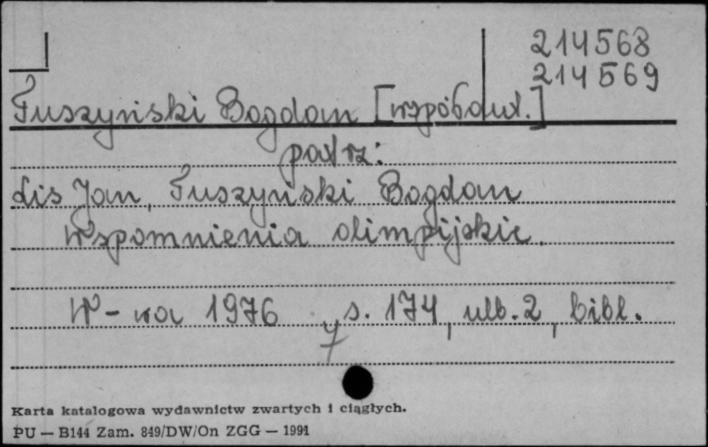 214568
214569
Tuszyński Bogdan [współaut.]
patrz:
Lis Jan, Tuszyński Bogdan
Wspomnienia olimpijskie.
W-wa 1976 s. 174, ulb. 2, bibl.
Karta katalogowa wydawnictw zwartych i ciągłych.
PU — B144 Zam. 849/DW/On ZGG — 1991